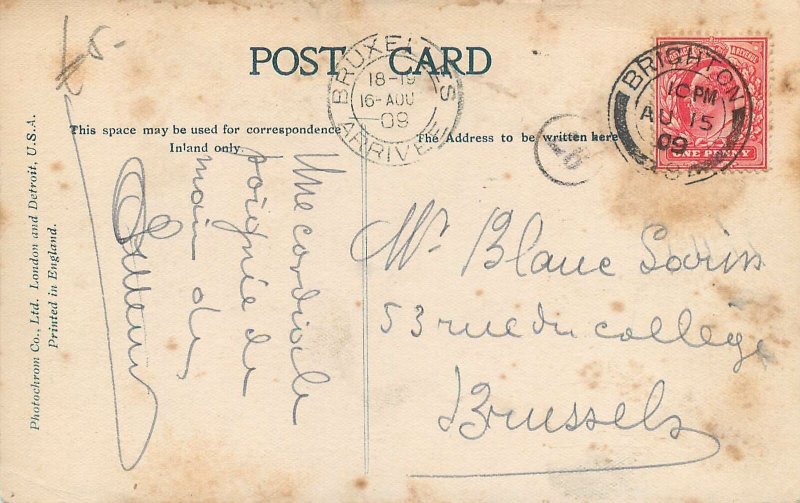 POST CARD
BRUXELLES
18-19
16-AOU
09
ARRIVEE
BRIGHTON
10 PM
AU 15
09
ONE PENNY
This space may be used for correspondence
Inland only.
The Address to be written here
Photochrom Co., Ltd. London and Detroit, U.S.A.
Printed in England.
Une cordiale
poignée de
main de
Mr. Blanc
53 rue du collège
Brussels